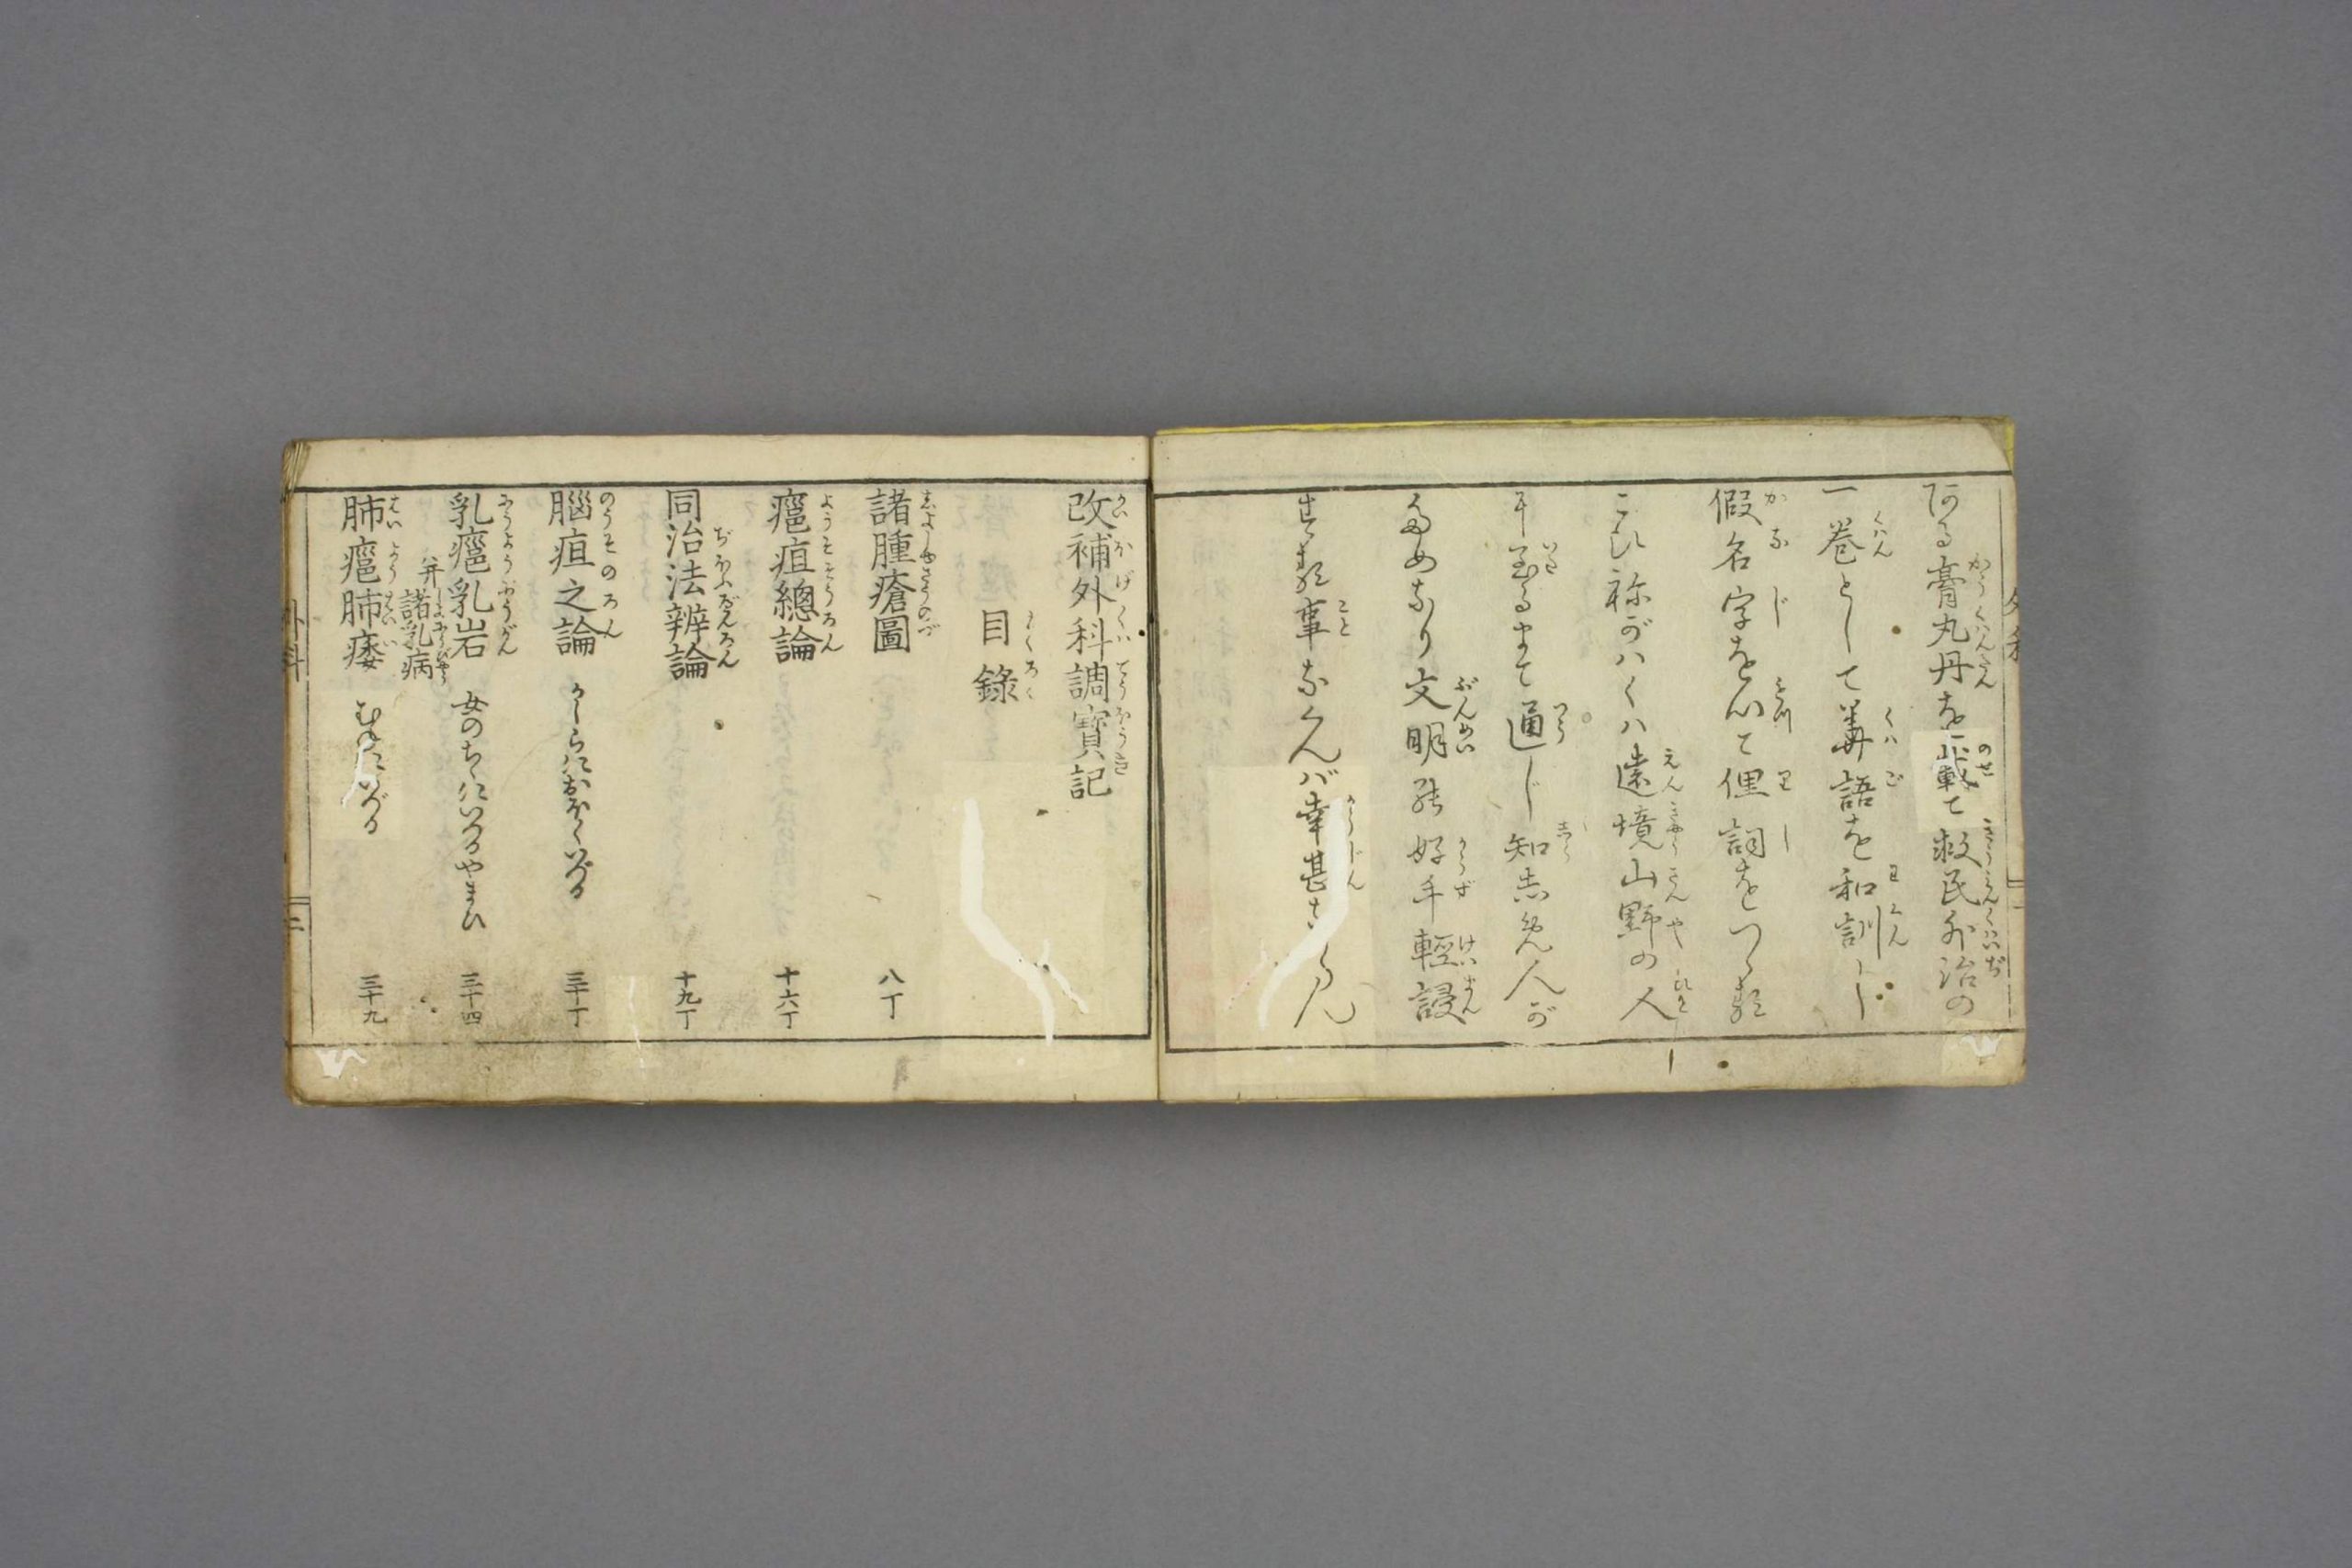 ある膏丸丹を載て救民外治の
一巻として華語を和訓し
假名字を以て俚詞をつゞる
こひ祢がハくハ遠境山野の人
に至るまで通じ知しめん人が
ためなり文明能好手輕謾
する事なくんバ幸甚ならん
改補外科調寶記
目録
諸腫瘡圖 八丁
癰疽總論 十六丁
同治法辨論 十九丁
腦疽之論 かしらにおほくいづる 三十丁
乳癰乳岩 女のちゝにいづるやまひ 三十四
并諸乳病
肺癰肺痿 むねにいづる 三十九
外科 二